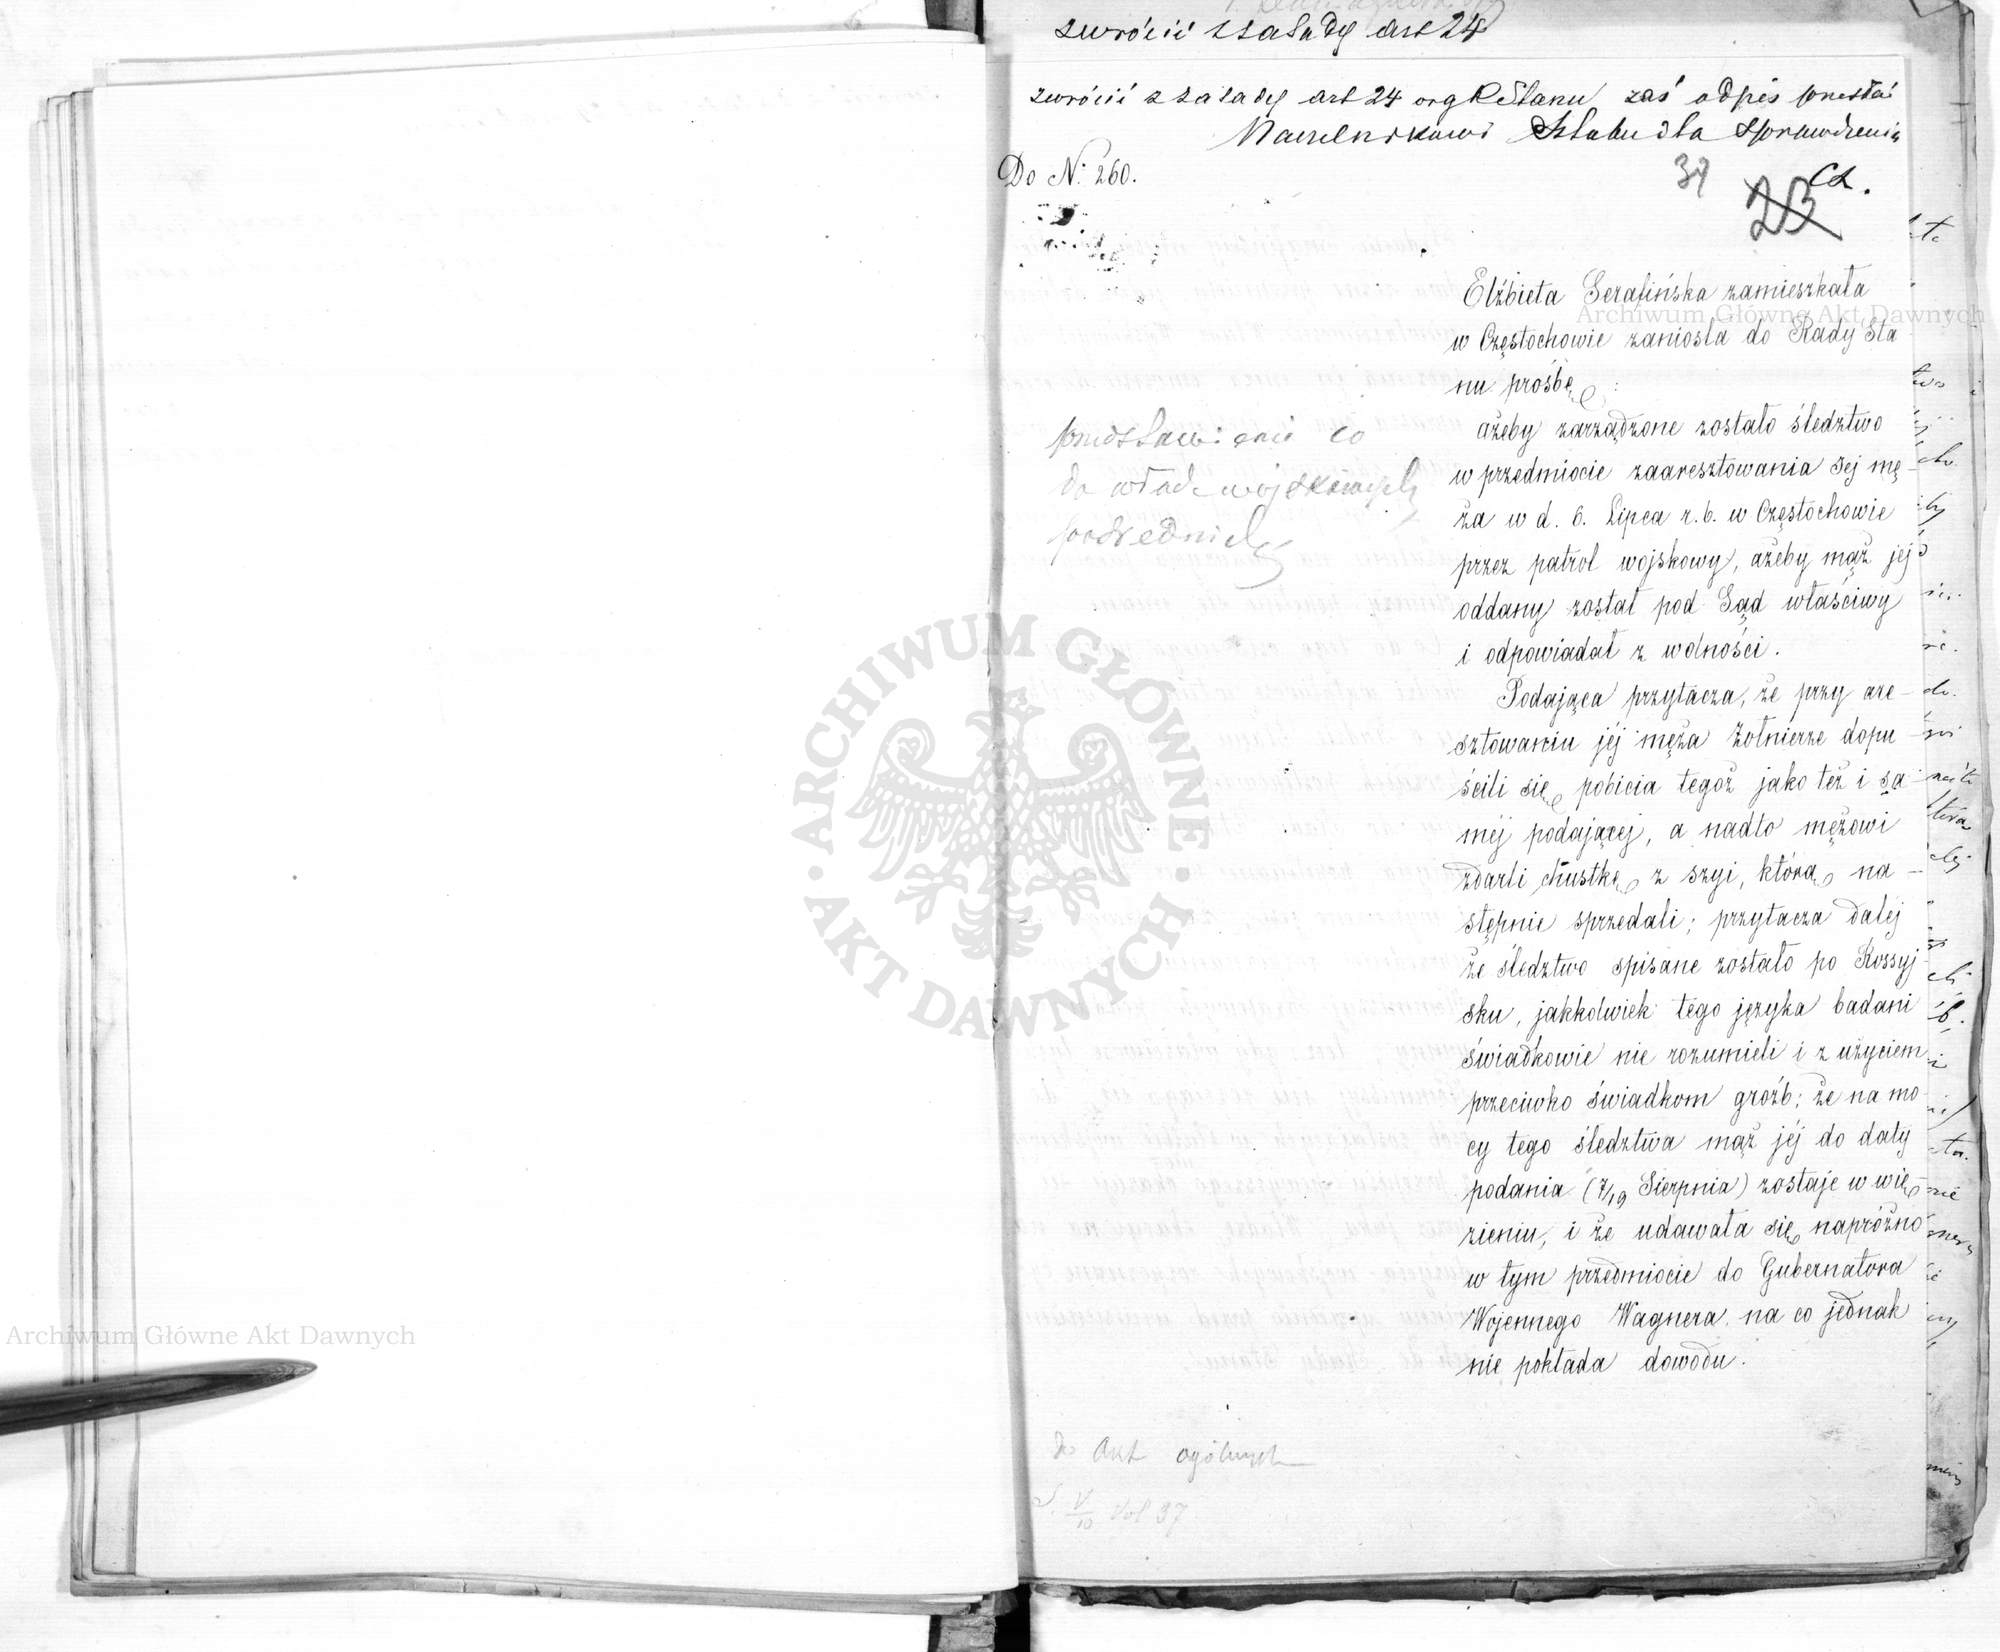 zwrócić z zasady art 24
zwrócić z zasady art 24 org RStanu zaś odpis przesłać
Naczelnikowi Sztabu dla sprawdzenia
Do N: 260.
37
23
Elżbieta Serafińska zamieszkała
w Częstochowie zaniosła do Rady Sta
nu prośbę:
ażeby zarządzone zostało śledztwo
w przedmiocie zaaresztowania jej mę-
ża w d. 6. Lipca r. b. w Częstochowie
przez patrol wojskowy, ażeby mąż jej
oddany został pod Sąd właściwy
i odpowiadał z wolności.
Podająca przytacza, że przy are-
sztowaniu jéj męża żołnierze dopu-
ścili się pobicia tegoż jako też i sa-
méj podającej, a nadto mężowi
zdarli chustkę z szyi, którą na-
stępnie sprzedali; przytacza dalej
że śledztwo spisane zostało po Rossyj-
sku, jakkolwiek tego języka badani
świadkowie nie rozumieli i z użyciem
przeciwko świadkom groźb; że na mo-
cy tego śledztwa mąż jéj do daty
podania (7/19 Sierpnia) zostaje w wię-
zieniu, i że udawała się napróżno
w tym przedmiocie do Gubernatora
Wojennego Wagnera, na co jednak
nie pokłada dowodu.
przedstawienie co
do władz wojskowych
pośrednich
do Akt ogólnych
V/10 Vol 37
Archiwum Główne Akt Dawnych
Archiwum Główne Akt Dawnych
ARCHIWUM GŁÓWNE
AKT DAWNYCH